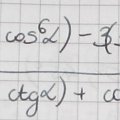 cos⁶α) - 3(
ctgα) + co